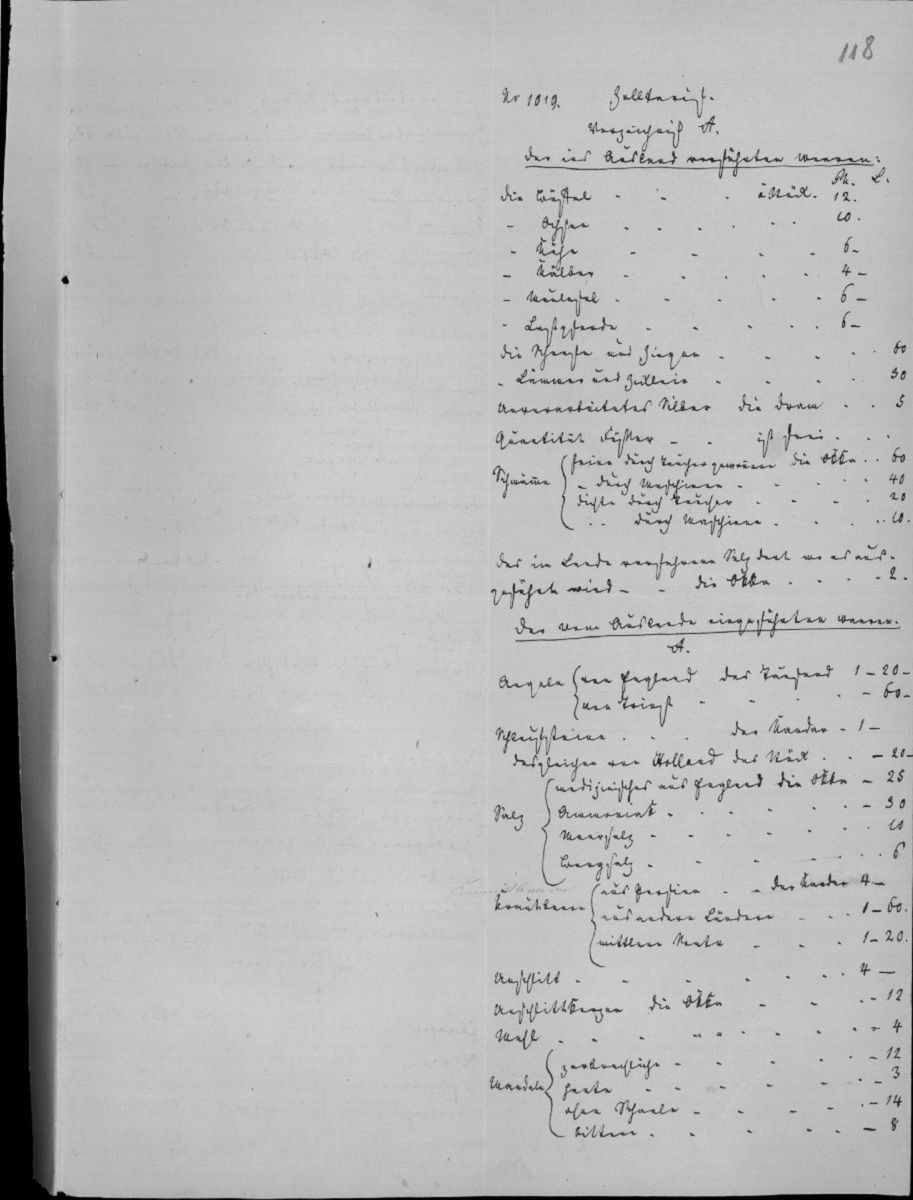 118
Nr 1019. Zolltarif.
Verzeichniß A.
der ins Ausland verführten waaren:
Ph. L.
die Büffel - - - à Stück. 12.
- Ochsen - - - - - 10.
- Kühe - - - - 6 -
- Kälber - - - - - 4 -
- Maulesel - - - - - 6 -
- Lastpferde - - - - - 6 -
die Schaafe und Ziegen - - - - - 60
- Lämmer und Zicklein - - - - 30
Unverarbeitetes Silber die Dram - - 5
Quantität Fässer - - ist frei - - -
Schwämme feine durch Taucher gewonnene die Okka - - 60
- durch Maschinen - - - - - 40
dichte durch Taucher - - - - 20
- - durch Maschinen - - - - 10.
das im Lande verfahrene Salz dort wo es aus-
geführt wird - - die Okka - - - - 2.
der vom Auslande eingeführten waaren.
A.
Angeln von England das Tausend 1 - 20 -
von Triest - - - - - - 60 -
Schleifsteine - - - der Kantar - 1 -
desgleichen von Holland das Stück - - - 20 -
Salz medizinisches aus England die Okka - 25
Ammoniak - - - - - - 30
Meersalz - - - - - - 10
Bergsalz - - - - - 6
aus Persien - - der Kantar 4 -
aus andern Ländern - - - 1 - 60.
mittlere Sorte - - - 1 - 20.
Unschlitt - - - - - - - 4 -
Unschlittkerzen die Okka - - - - 12
Mehl - - - - - - - - 4
Mandeln zerbrechliche - - - - - 12
harte - - - - - - 3
ohne Schaale - - - - - 14
bittere - - - - - - 8